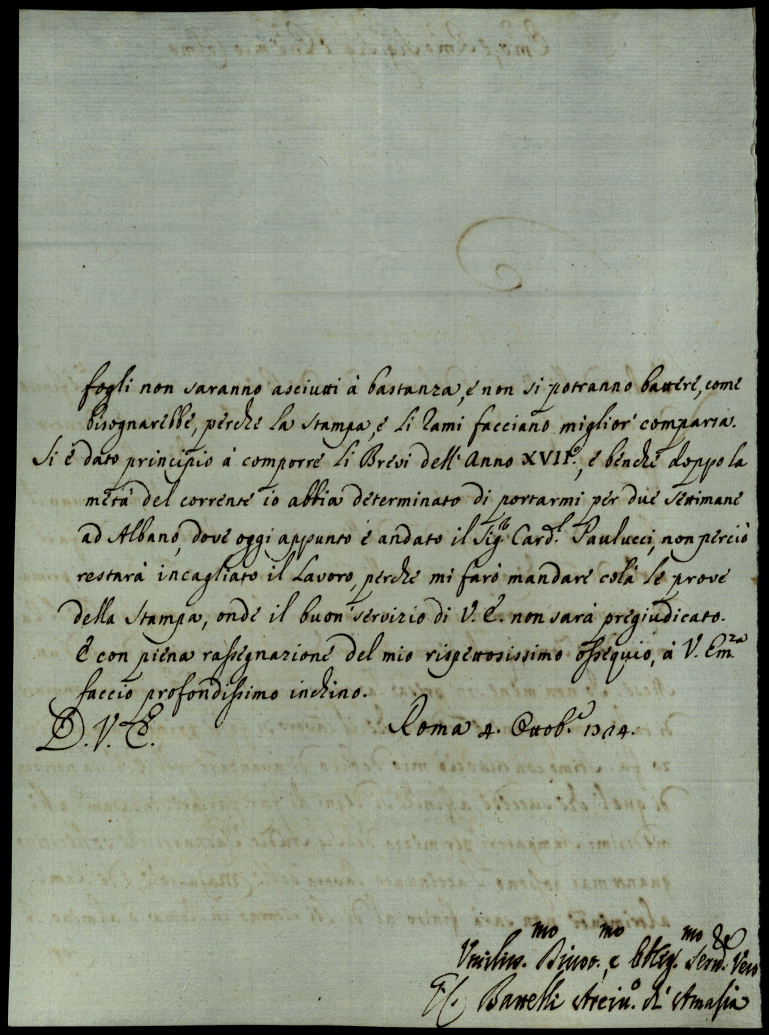 fogli non saranno asciutti à bastanza, e non si potranno battere, come
bisognarebbe, perche la stampa, e li Rami facciano miglior comparsa.
Si è dato principio à comporre li Brevi dell' Anno XVII.º, e benche doppo la
metà del corrente io abbia determinato di portarmi per due settimane
ad Albano, dove oggi appunto è andato il Sig.r Card.l Paulucci, non perciò
restarà incagliato il Lavoro, perche mi farò mandare colà le prove
della stampa, onde il buon servizio di V. E. non sarà pregiudicato.
E con piena rassegnazione del mio rispettosissimo ossequio, à V. Em.za
faccio profondissimo inchino.
D. V. E.
Roma 4. Ottob.e 1724.
Umilis.mo Divot.mo, e Obblig.mo Serv.re Vero
Battelli Arciv.o d' Amasia